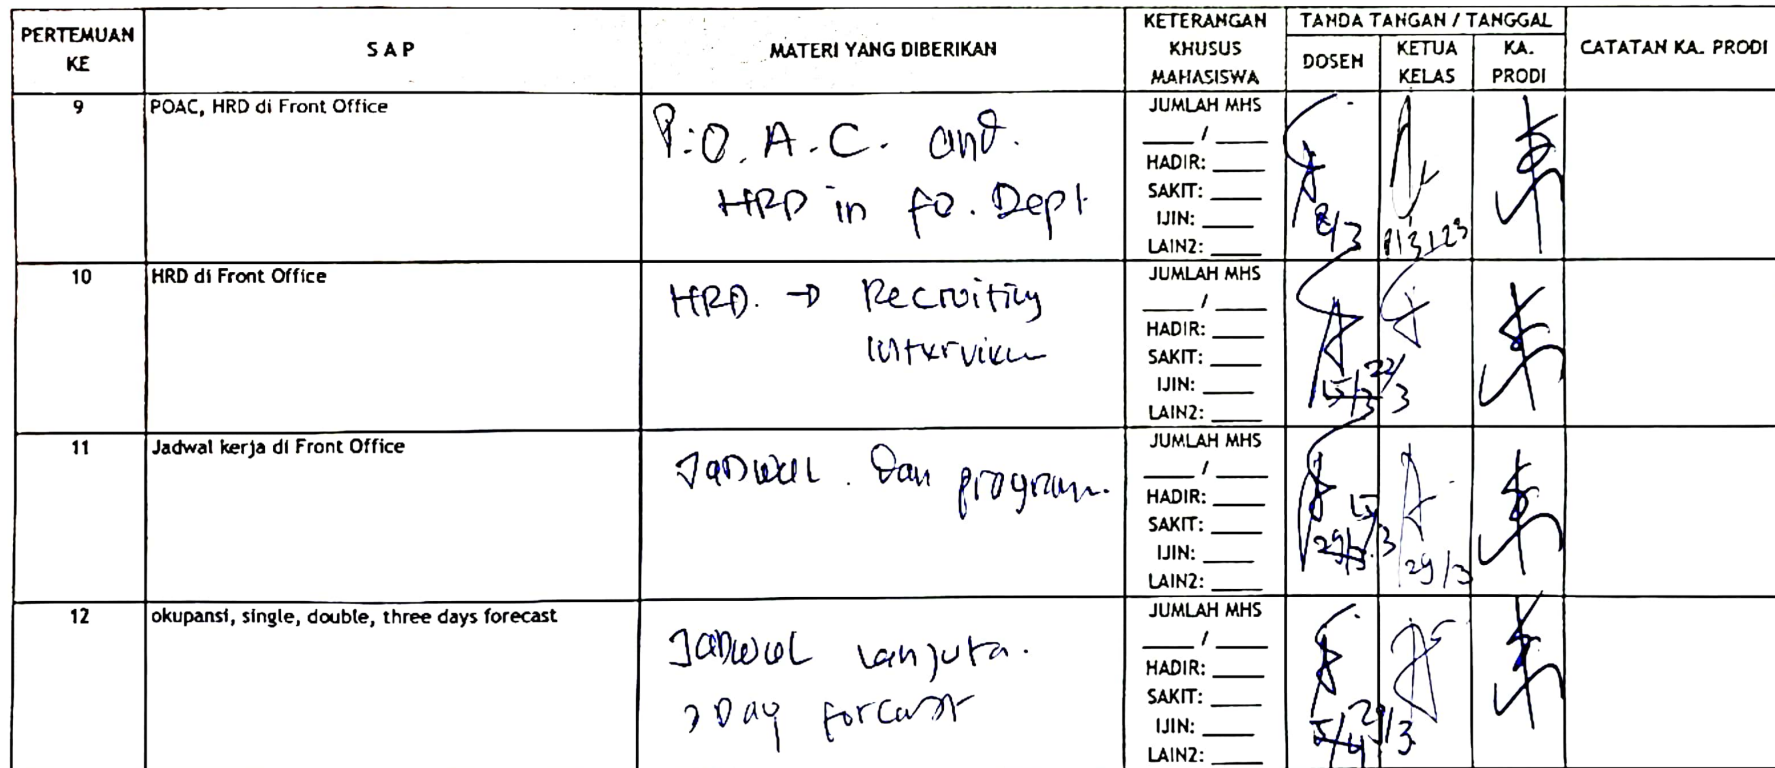 PERTEMUAN KE
S A P
MATERI YANG DIBERIKAN
KETERANGAN KHUSUS MAHASISWA
TANDA TANGAN / TANGGAL
DOSEN
KETUA KELAS
KA. PRODI
CATATAN KA. PRODI
9
POAC, HRD di Front Office
P.O.A.C. and.
HRD in FO. Dept
JUMLAH MHS
___ / ___
HADIR: ___
SAKIT: ___
IJIN: ___
LAIN2: ___
8/3
8/3/23
10
HRD di Front Office
HRD. → Recruiting
Interview
JUMLAH MHS
___ / ___
HADIR: ___
SAKIT: ___
IJIN: ___
LAIN2: ___
15/3
22/3
11
Jadwal kerja di Front Office
Jadwal. Dan program.
JUMLAH MHS
___ / ___
HADIR: ___
SAKIT: ___
IJIN: ___
LAIN2: ___
29/3
29/3
12
okupansi, single, double, three days forecast
Jadwal lanjuta.
3 Day forcast
JUMLAH MHS
___ / ___
HADIR: ___
SAKIT: ___
IJIN: ___
LAIN2: ___
5/4
29/3